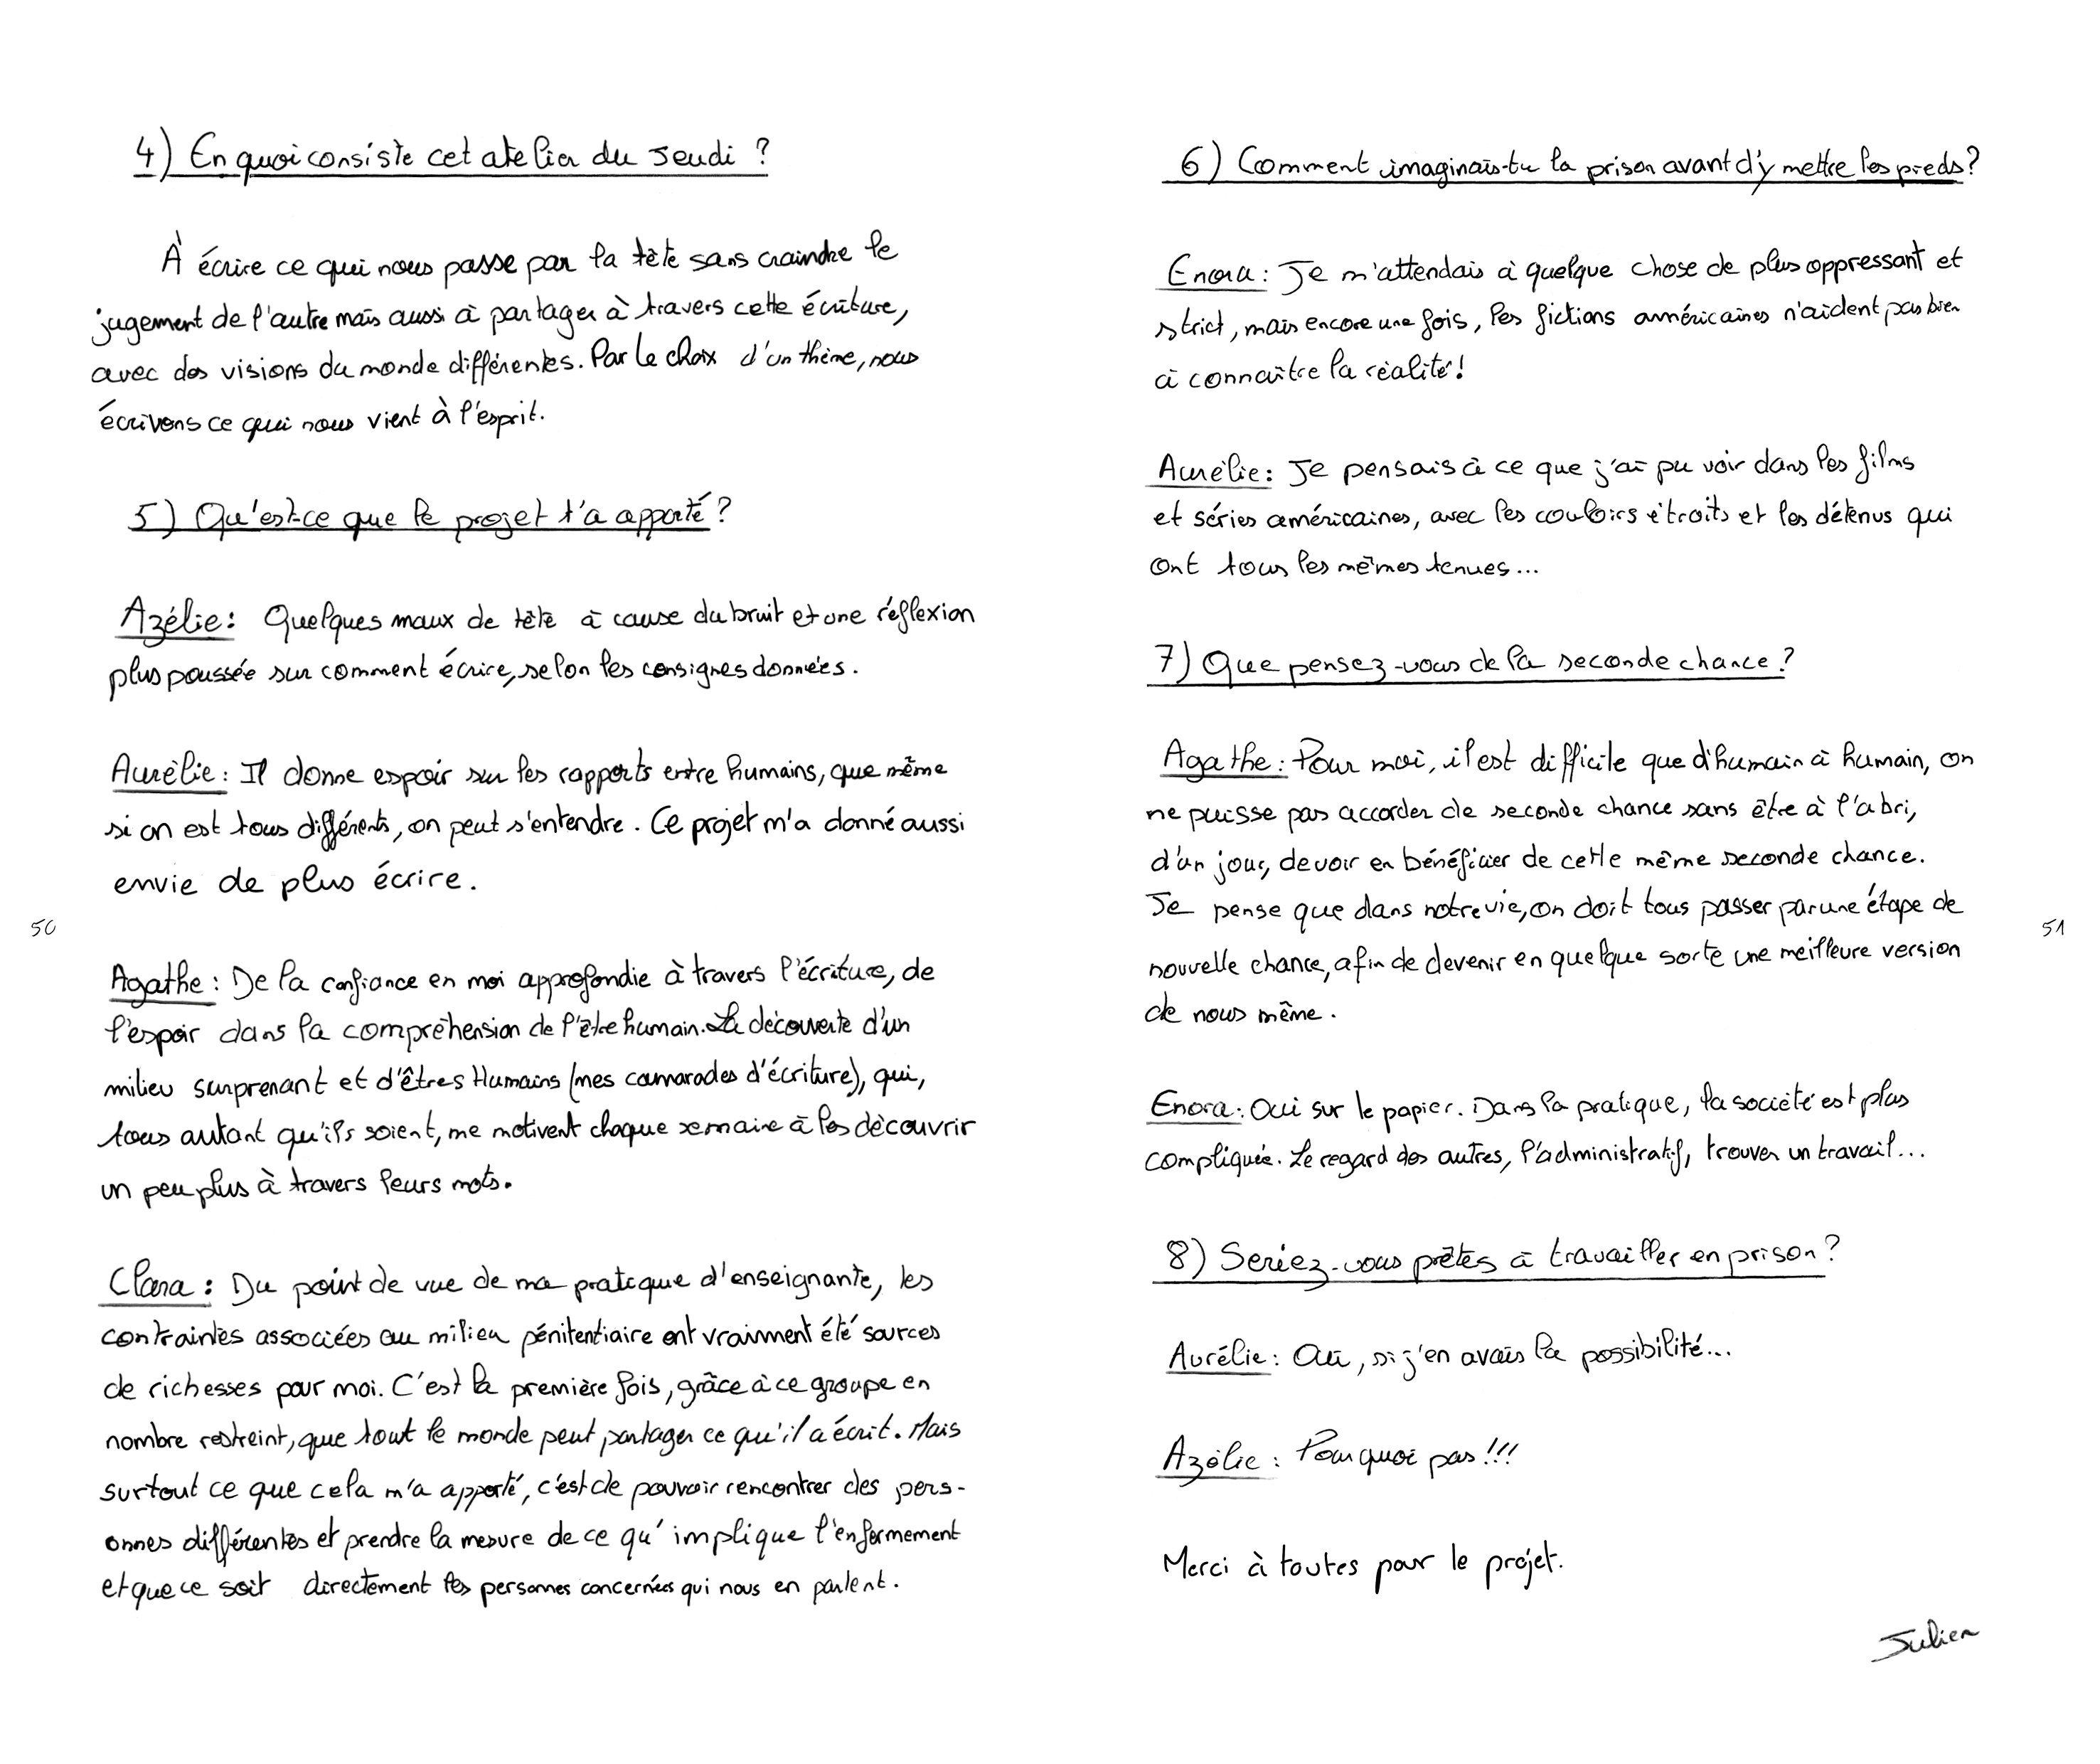 4) En quoi consiste cet atelier du Jeudi ?
À écrire ce qui nous passe par la tête sans craindre le
jugement de l'autre mais aussi à partager à travers cette écriture,
avec des visions du monde différentes. Par le choix d'un thème, nous
écrivons ce qui nous vient à l'esprit.
5) Qu'est-ce que le projet t'a apporté ?
Azélie : Quelques maux de tête à cause du bruit et une réflexion
plus poussée sur comment écrire, selon les consignes données.
Aurélie : Il donne espoir sur les rapports entre humains, que même
si on est tous différents, on peut s'entendre. Ce projet m'a donné aussi
envie de plus écrire.
Agathe : De la confiance en moi approfondie à travers l'écriture, de
l'espoir dans la compréhension de l'être humain. La découverte d'un
milieu surprenant et d'êtres Humains (mes camarades d'écriture), qui,
tous autant qu'ils soient, me motivent chaque semaine à les découvrir
un peu plus à travers leurs mots.
Clara : Du point de vue de ma pratique d'enseignante, les
contraintes associées au milieu pénitentiaire ont vraiment été sources
de richesses pour moi. C'est la première fois, grâce à ce groupe en
nombre restreint, que tout le monde peut partager ce qu'il a écrit. Mais
surtout ce que cela m'a apporté, c'est de pouvoir rencontrer des pers-
onnes différentes et prendre la mesure de ce qu'implique l'enfermement
et que ce soit directement les personnes concernées qui nous en parlent.
50
6) Comment imaginais-tu la prison avant d'y mettre les pieds ?
Enora : Je m'attendais à quelque chose de plus oppressant et
strict, mais encore une fois, les fictions américaines n'aident pas bien
à connaître la réalité !
Aurélie : Je pensais à ce que j'ai pu voir dans les films
et séries américaines, avec les couloirs étroits et les détenus qui
ont tous les mêmes tenues...
7) Que pensez-vous de la seconde chance ?
Agathe : Pour moi, il est difficile que d'humain à humain, on
ne puisse pas accorder de seconde chance sans être à l'abri,
d'un jour, devoir en bénéficier de cette même seconde chance.
Je pense que dans notre vie, on doit tous passer par une étape de
nouvelle chance, afin de devenir en quelque sorte une meilleure version
de nous même.
Enora : Oui sur le papier. Dans la pratique, la société est plus
compliquée. Le regard des autres, l'administratif, trouver un travail...
8) Seriez-vous prêtes à travailler en prison ?
Aurélie : Oui, si j'en avais la possibilité...
Azélie : Pourquoi pas !!!
Merci à toutes pour le projet.
Julien
51